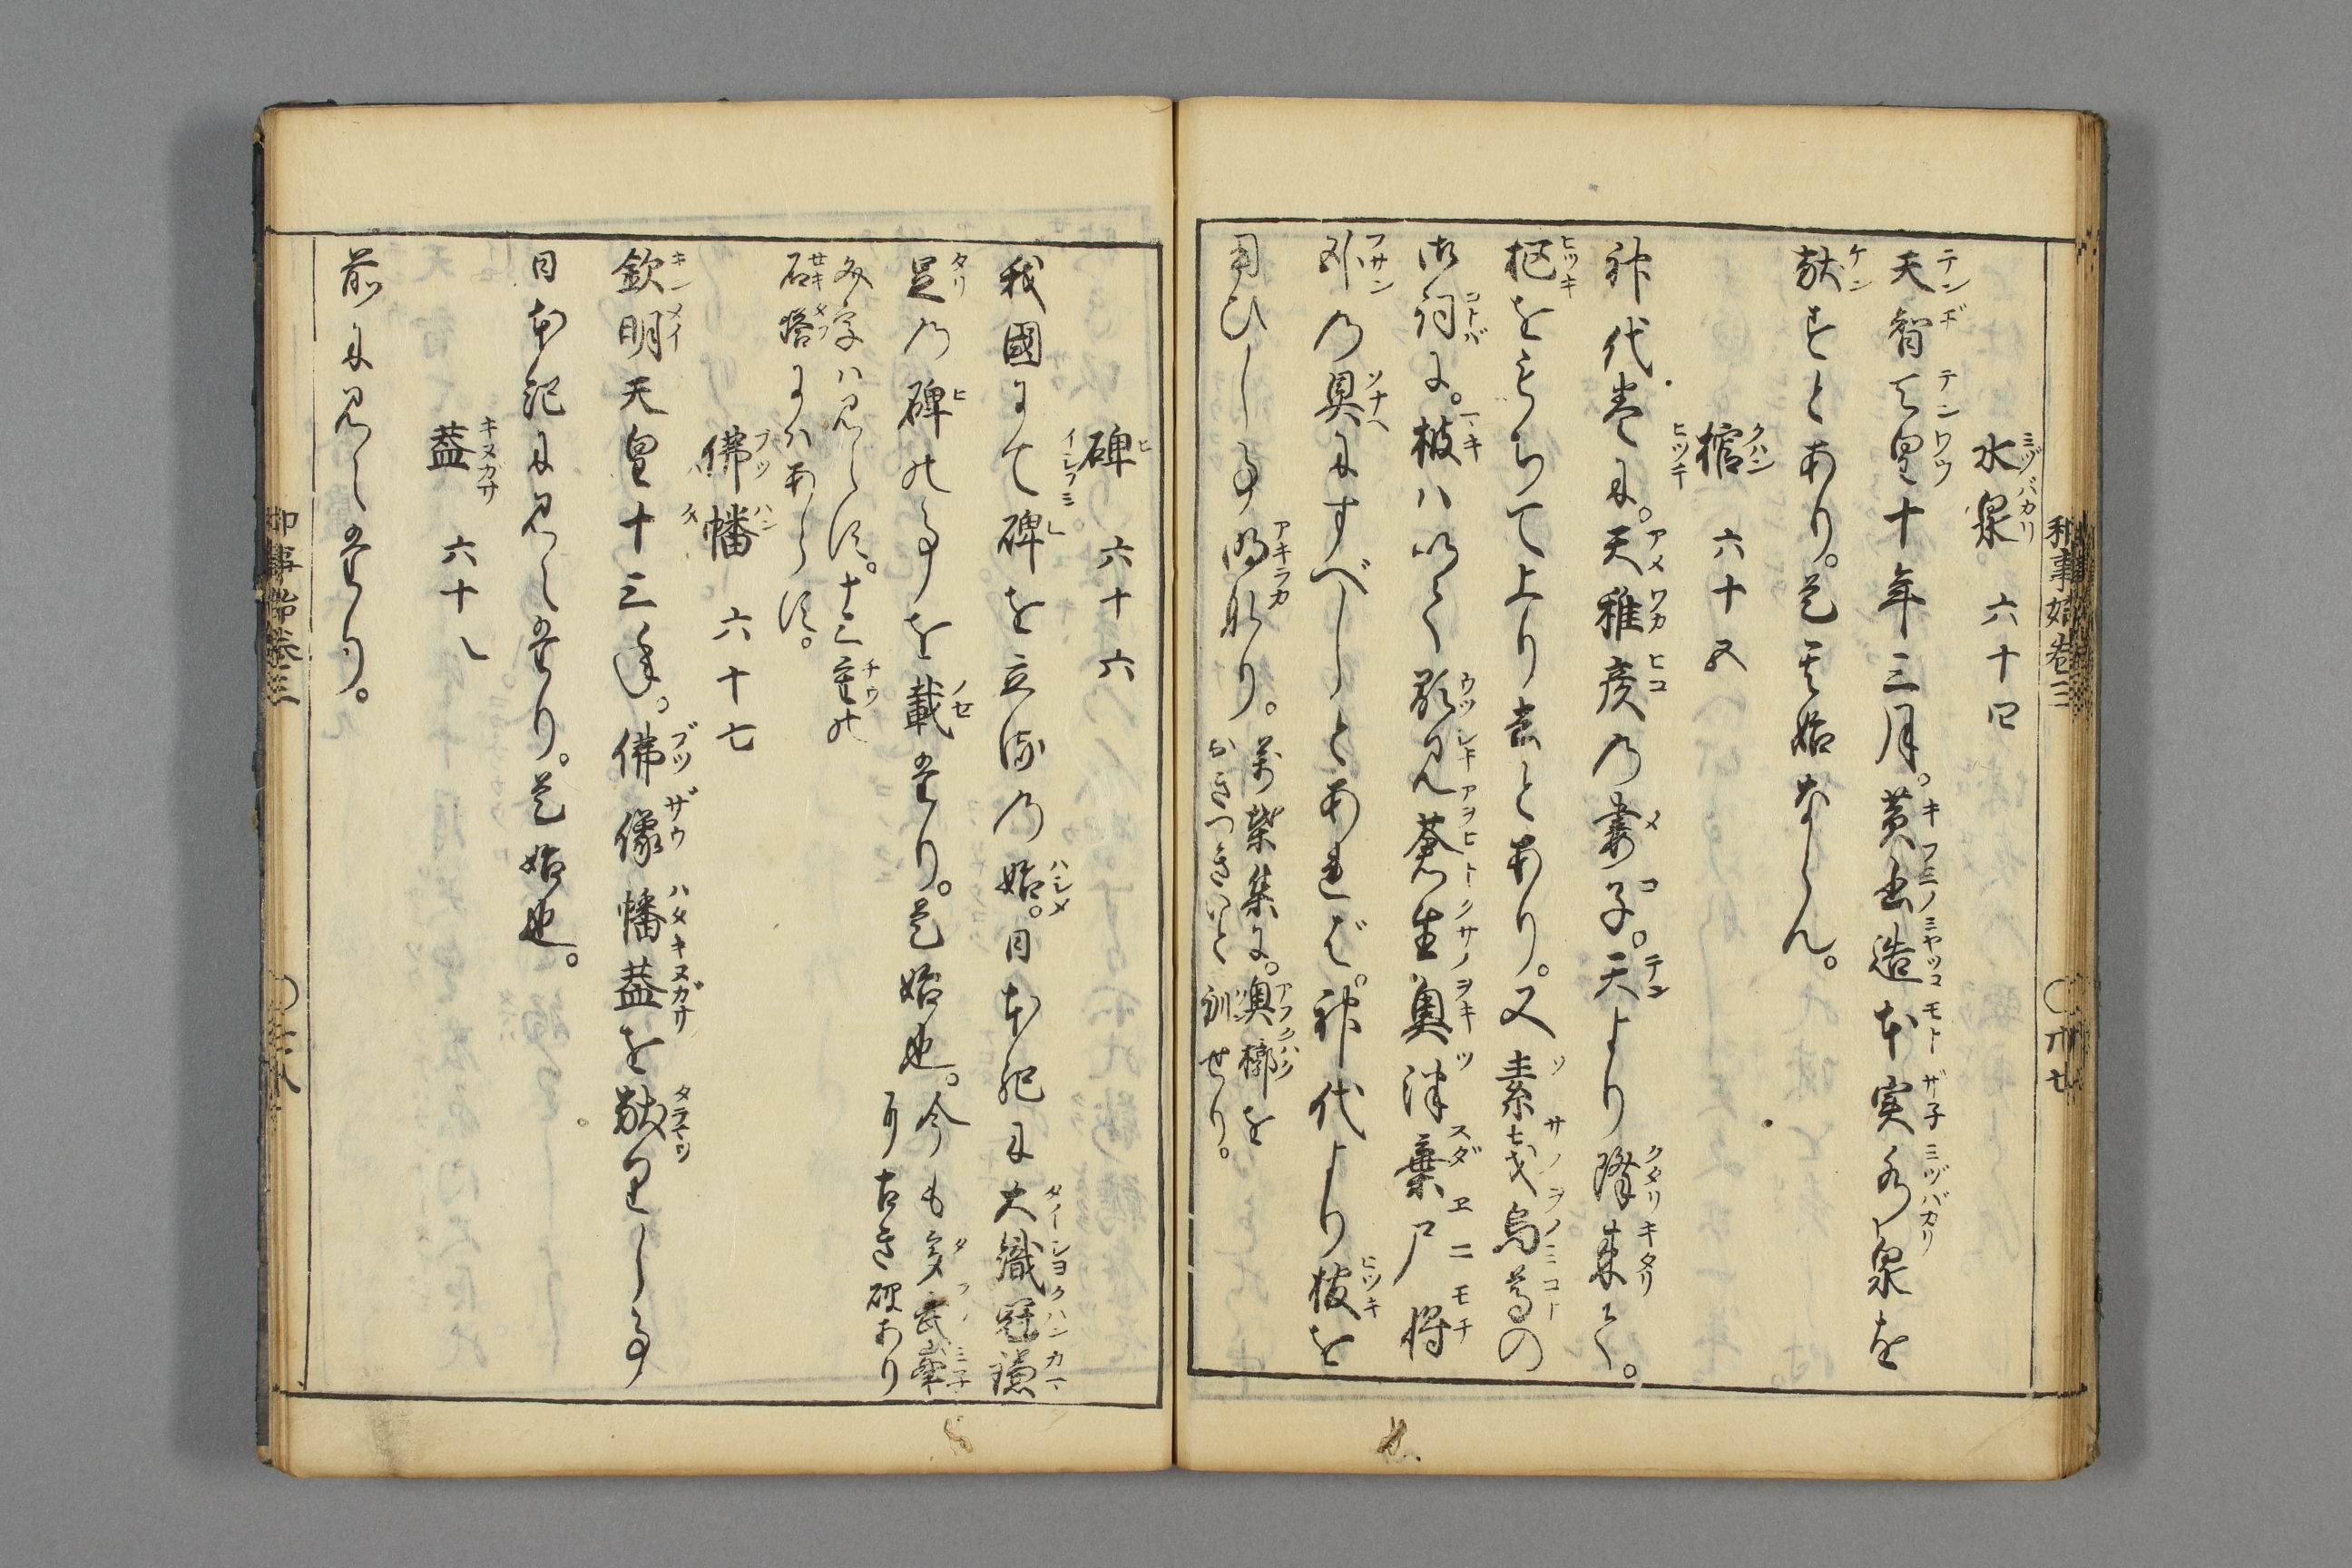 和事始巻三　〇廿七
水泉　六十四
天智天皇十年三月。黄書造本実水泉を
献ずとあり。是其始ならん。
棺　六十五
神代巻に。天稚彦の妻子。天より降来て。
柩をもちて上り去とあり。又素戔烏尊の
御詞に。被ハ以て顕見蒼生奥津棄戸将
臥の具にすべしとあれば。神代より柩を
用ひし事明なり。萬葉集に。奥槨を
おきつきと訓せり。
碑　六十六
我國にて碑を立る乃始。日本紀に大織冠鎌
足の碑の事を載たり。是始也。今も多武峯
に古き碑あり
文字ハ見えず。十三重の
石塔にハあらず。
佛幡　六十七
欽明天皇十三年。佛像幡蓋を献りし事
日本紀に見えたり。是始也。
蓋　六十八
前に見えたり。
和事始巻三　〇廿八